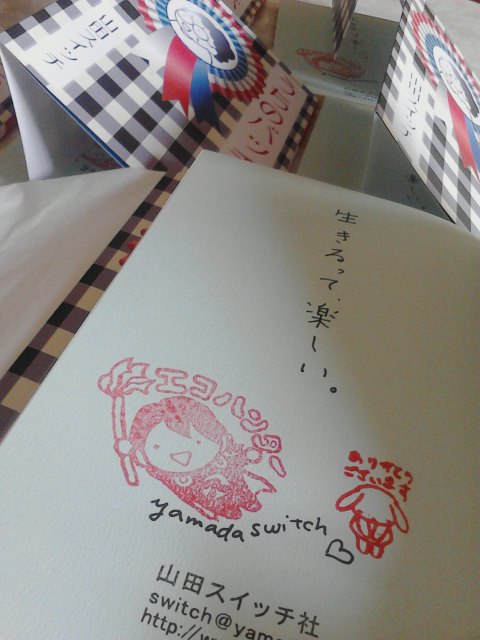 山田スイッチ
山田スイッチ
生きるって、楽しい。
エコハンター
ありがとう
ございます
yamada switch
山田スイッチ社
switch@yama
http://w